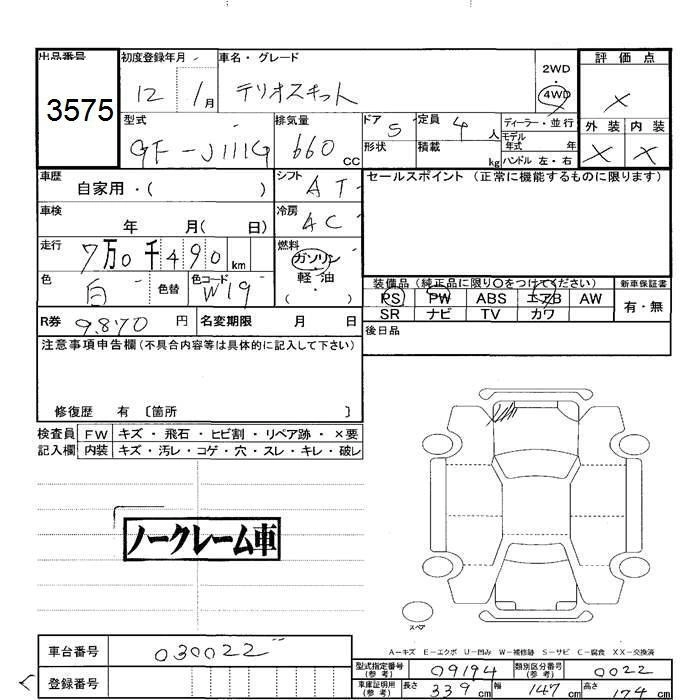 出品番号
3575
初度登録年月
12 1月
車名・グレード
テリオスキット
2WD
・
4WD
評価点
×
外装 内装
× ×
型式
GF-J111G
排気量
660 cc
ドア 5
形状
定員 4 人
積載 kg
ディーラー・並行
モデル
年式 年
ハンドル 左・右
車歴
自家用・( )
シフト
AT
セールスポイント (正常に機能するものに限ります)
車検
年 月( 日)
冷房
AC
走行
7万0千490 km
燃料
ガソリン
・
軽油
・
色
白
色替
色コード
W19
装備品 (純正品に限り○をつけてください)
新車保証書
PS PW ABS エアB AW
SR ナビ TV カワ
有・無
R券 9.870 円
名変期限 月 日
後日品
注意事項申告欄 (不具合内容等は具体的に記入して下さい)
修復歴 有 〔箇所 〕
検査員 FW キズ・飛石・ヒビ割・リペア跡・×要
記入欄 内装 キズ・汚レ・コゲ・穴・スレ・キレ・破レ
ノークレーム車
スペア
A-キズ E-エクボ U-凹み W-補修跡 S-サビ C-腐食 XX-交換済
車台番号 030022
登録番号
型式指定番号
(参考)
09194
類別区分番号
(参考)
0022
車庫証明用
(参考)
長さ 339 cm 幅 147 cm 高さ 174 cm